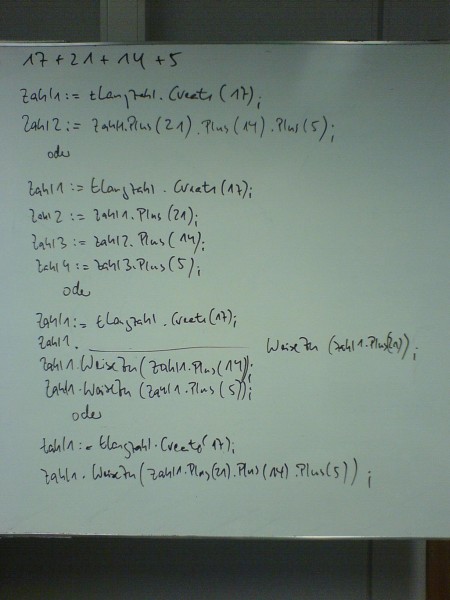 17 + 21 + 14 + 5
Zahl1 := tLangzahl.Create(17);
Zahl2 := Zahl1.Plus(21).Plus(14).Plus(5);
oder
Zahl1 := tLangzahl.Create(17);
Zahl2 := Zahl1.Plus(21);
Zahl3 := Zahl2.Plus(14);
Zahl4 := Zahl3.Plus(5);
oder
Zahl1 := tLangzahl.Create(17);
Zahl1. WeiseZu (Zahl1.Plus(21));
Zahl1.WeiseZu(Zahl1.Plus(14));
Zahl1.WeiseZu(Zahl1.Plus(5));
oder
Zahl1 := tLangzahl.Create(17);
Zahl1.WeiseZu(Zahl1.Plus(21).Plus(14).Plus(5));